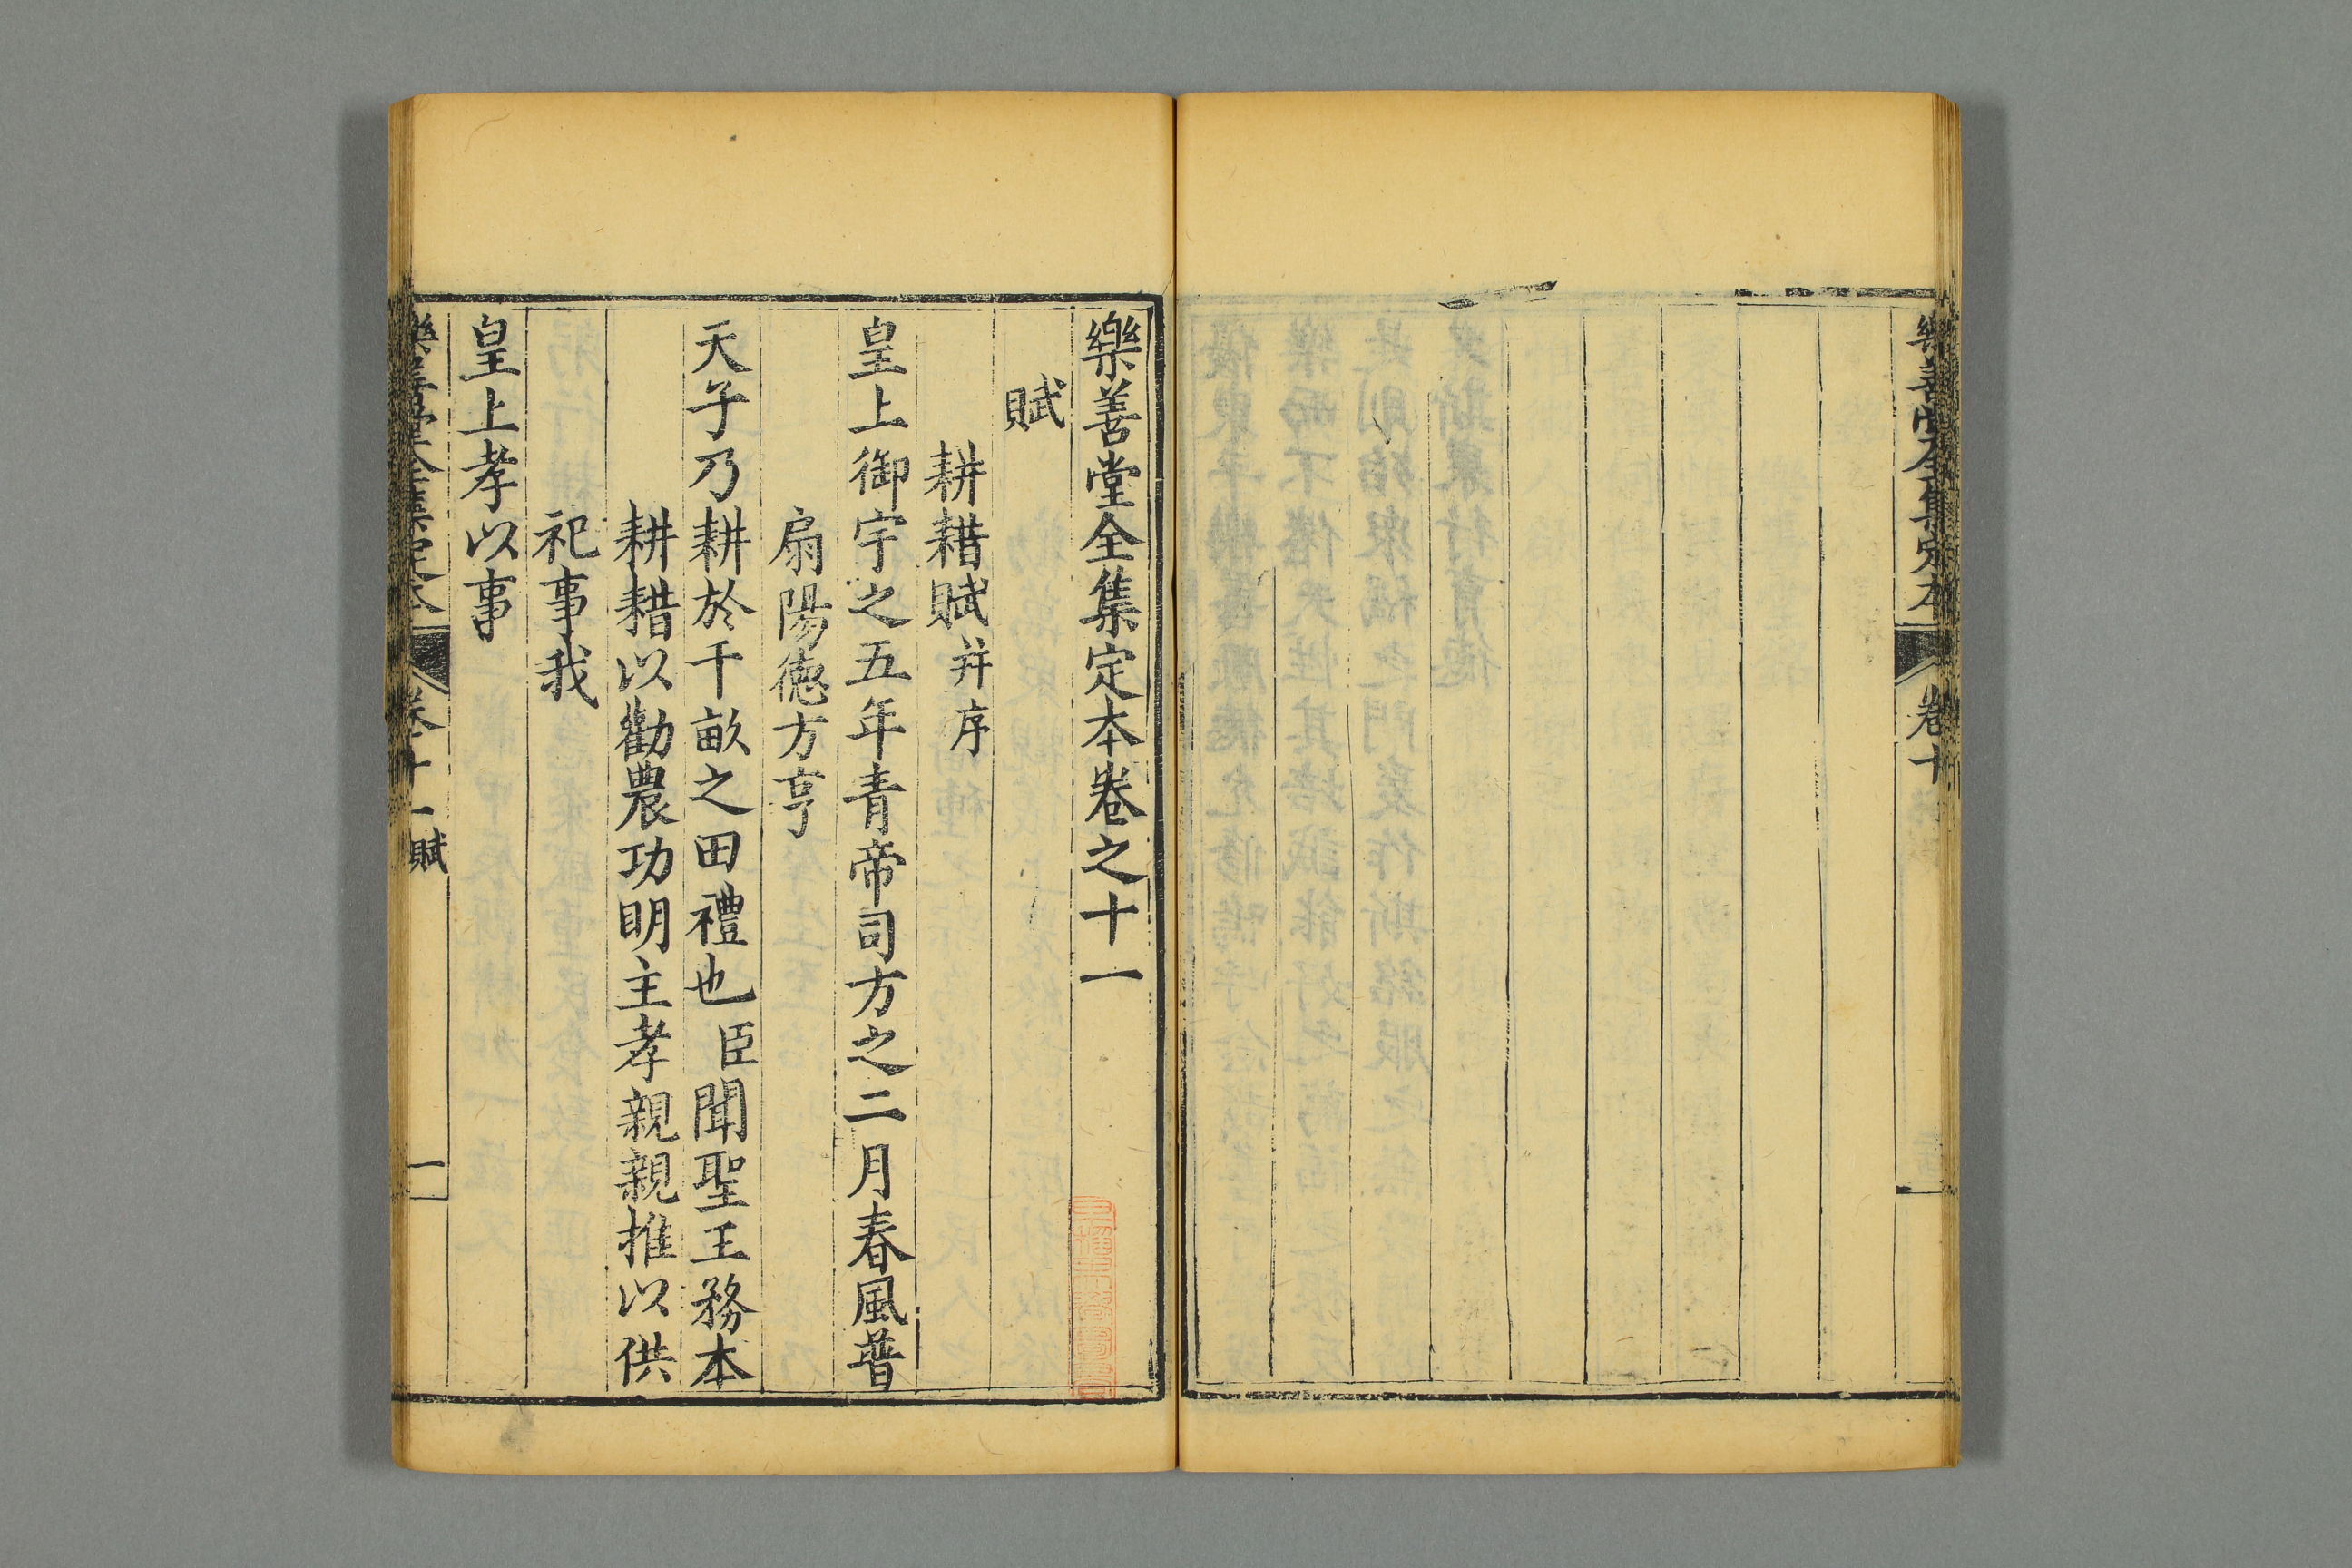 樂善堂全集定本
卷十
樂善堂全集定本卷之十一
賦
耕耤賦并序
皇上御宇之五年青帝司方之二月春風普
扇陽德方亨
天子乃耕於千畝之田禮也臣聞聖王務本
耕耤以勸農功明主孝親親推以供
祀事我
皇上孝以事
樂善堂全集定本
卷十一賦
一